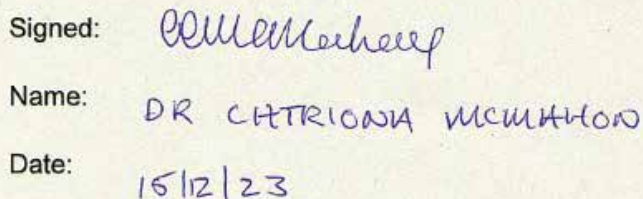 Signed:
Name: DR CATRIONA MCMAHON
Date: 15/12/23